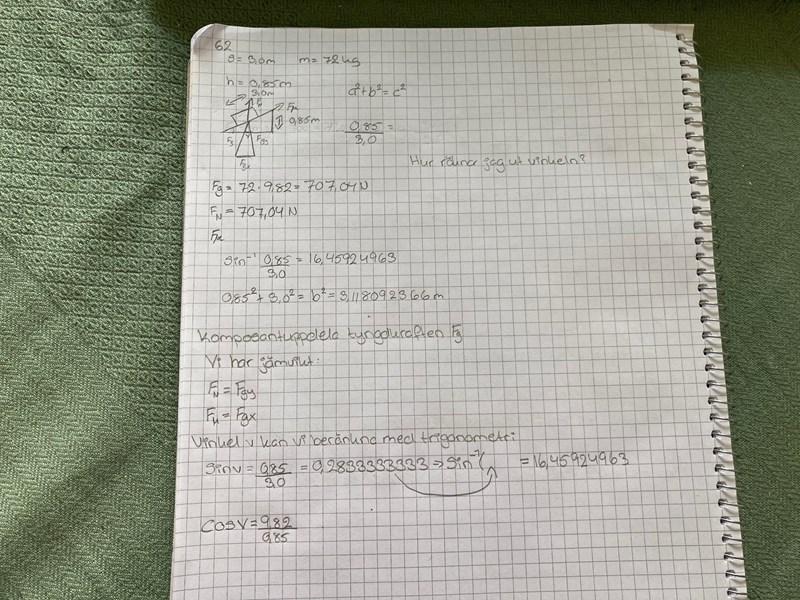 62
s = 3,0m m = 72 kg
h = 0,85m
3,0m
a²+b²=c²
Fμ
0,85m
0,85/3,0 =
Fg
Hur räknar jag ut vinkeln?
Fg = 72 · 9,82 = 707,04 N
FN = 707,04 N
Fμ
sin⁻¹ 0,85/3,0 = 16,45924963
0,85² + 3,0² = b² = 3,118092366 m
Komposantuppdela tyngdkraften Fg
Vi har jämvikt:
FN = Fgy
Fμ = Fgx
Vinkel v kan vi beräkna med trigonometri:
Sinv = 0,85/3,0 = 0,2833333333 ⇒ Sin⁻¹( = 16,45924963
COSV = 9,82/0,85